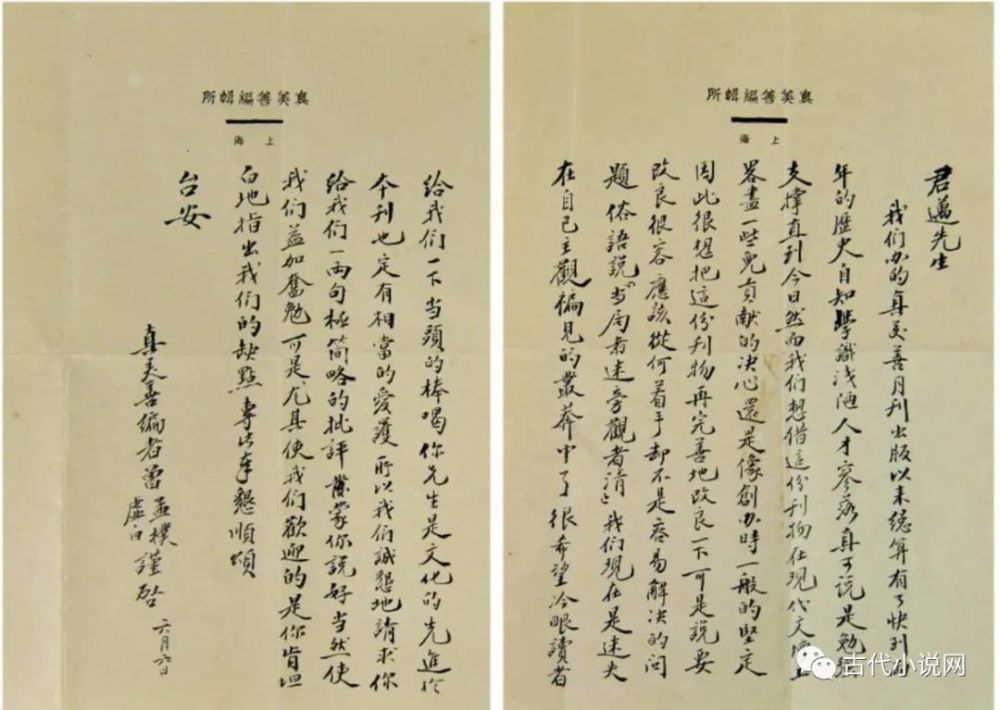 真美善編輯所
上海
君邁先生
我们办的真美善月刊出版以来總算有了快到
年的歷史自知學識浅陋人才寥落真可说是勉强
支撑直到今日然而我们想借這份刊物在現代文壇上
畧盡一些兒貢献的决心還是像創办時一般的堅定
因此很想把這份刊物再完善地改良一下可是説要
改良很容應該從何着手却不是容易解决的问
题俗語説“当局者迷旁觀者清”我们現在是迷失
在自己主觀褊見的叢莽中了很希望冷眼讀者
真美善編輯所
上海
给我们一下当頭的棒喝你先生是文化的先進於
本刊也定有相當的愛護所以我们誠恳地請求你
给我们一两句極简略的批評蒙你説好当然使
我们益加奮勉可是尤其使我们歡迎的是你肯坦
白地指出我们的缺點專此奉懇順頌
台安
真美善编者曾孟樸虚白謹啓
六月六日
古代小说网